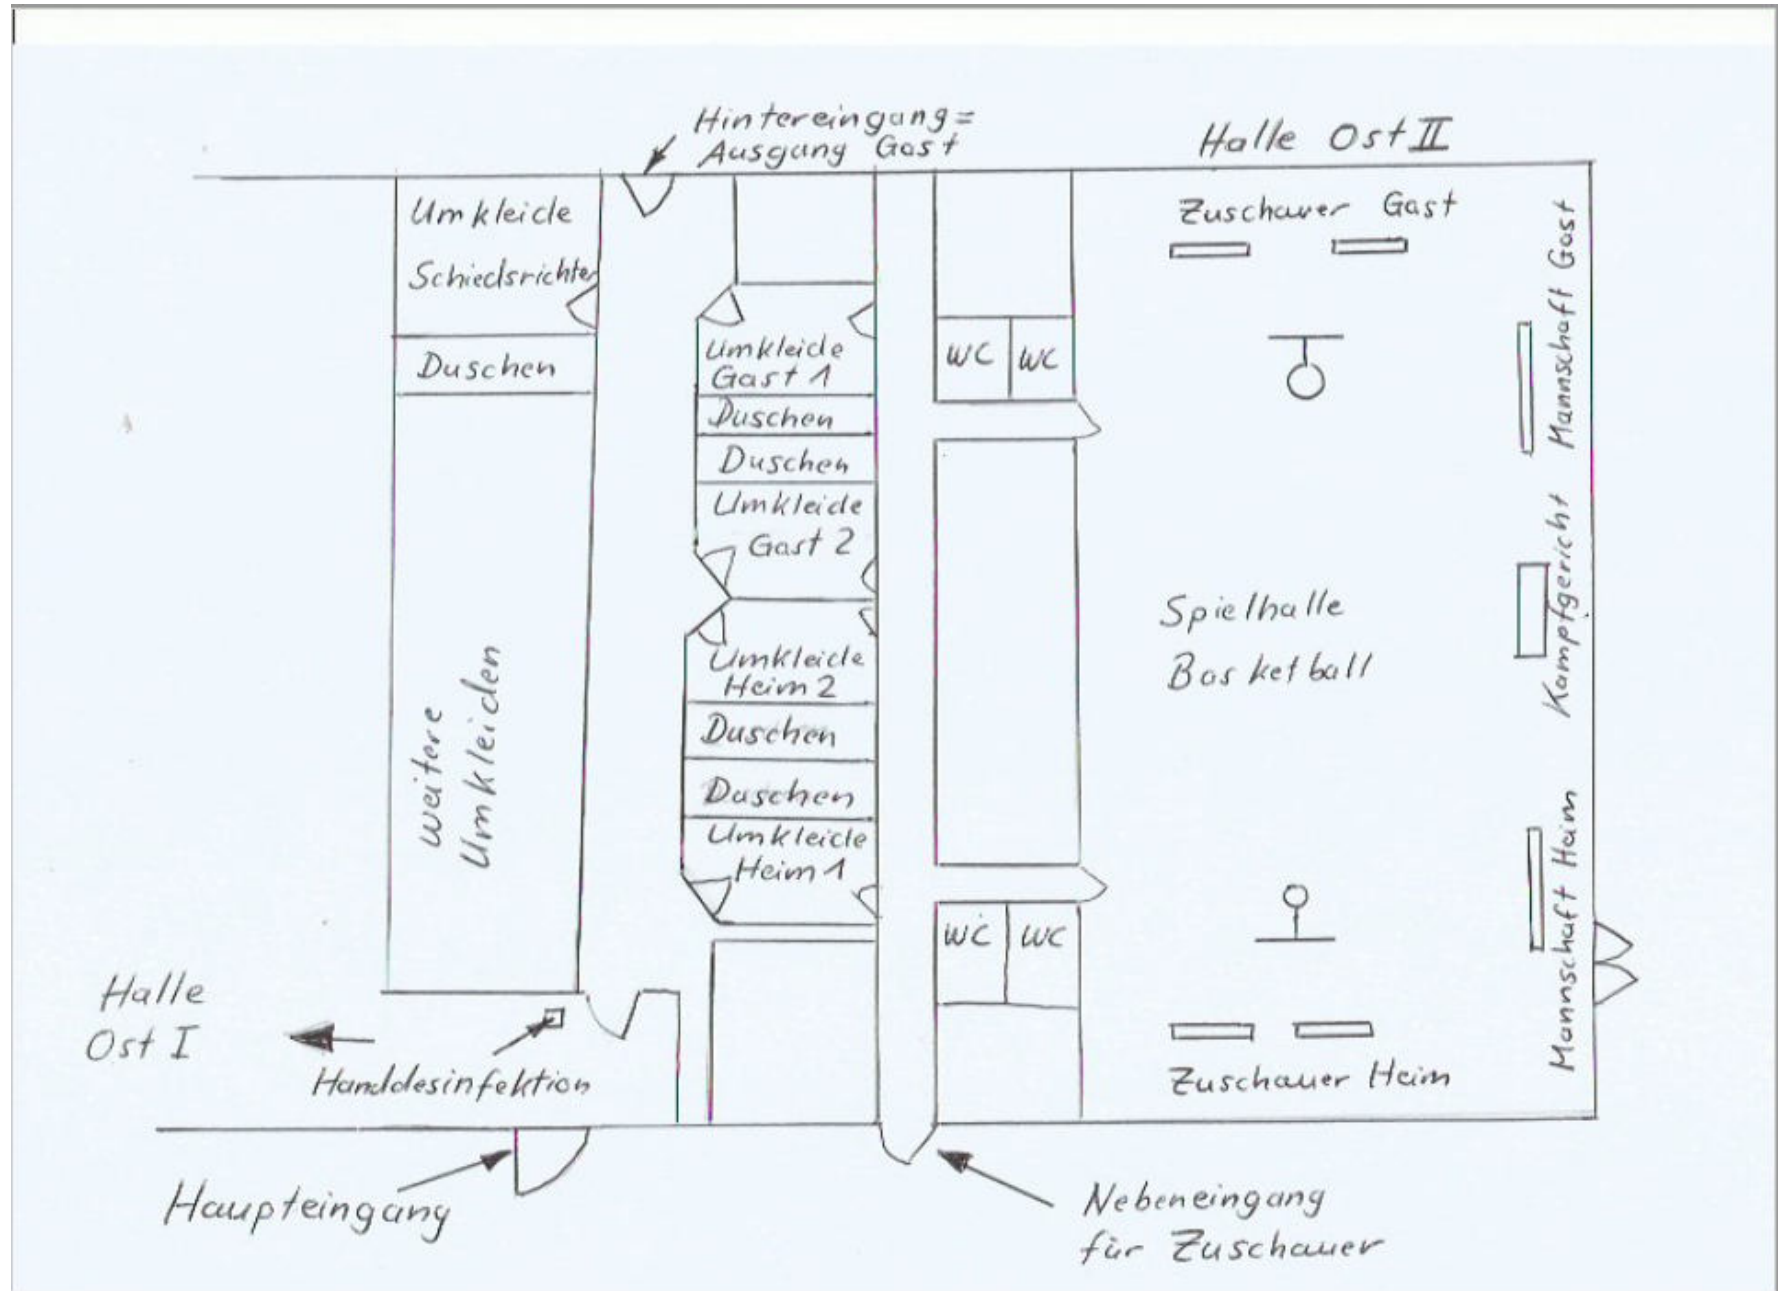 Hintereingang =
Ausgang Gast
Halle Ost II
Umkleide
Schiedsrichter
Duschen
weitere
Umkleiden
Umkleide
Gast 1
Duschen
Duschen
Umkleide
Gast 2
Umkleide
Heim 2
Duschen
Duschen
Umkleide
Heim 1
WC
WC
WC
WC
Zuschauer Gast
Mannschaft Gast
Kampfgericht
Spielhalle
Basketball
Mannschaft Heim
Zuschauer Heim
Halle
Ost I
Handdesinfektion
Haupteingang
Nebeneingang
für Zuschauer